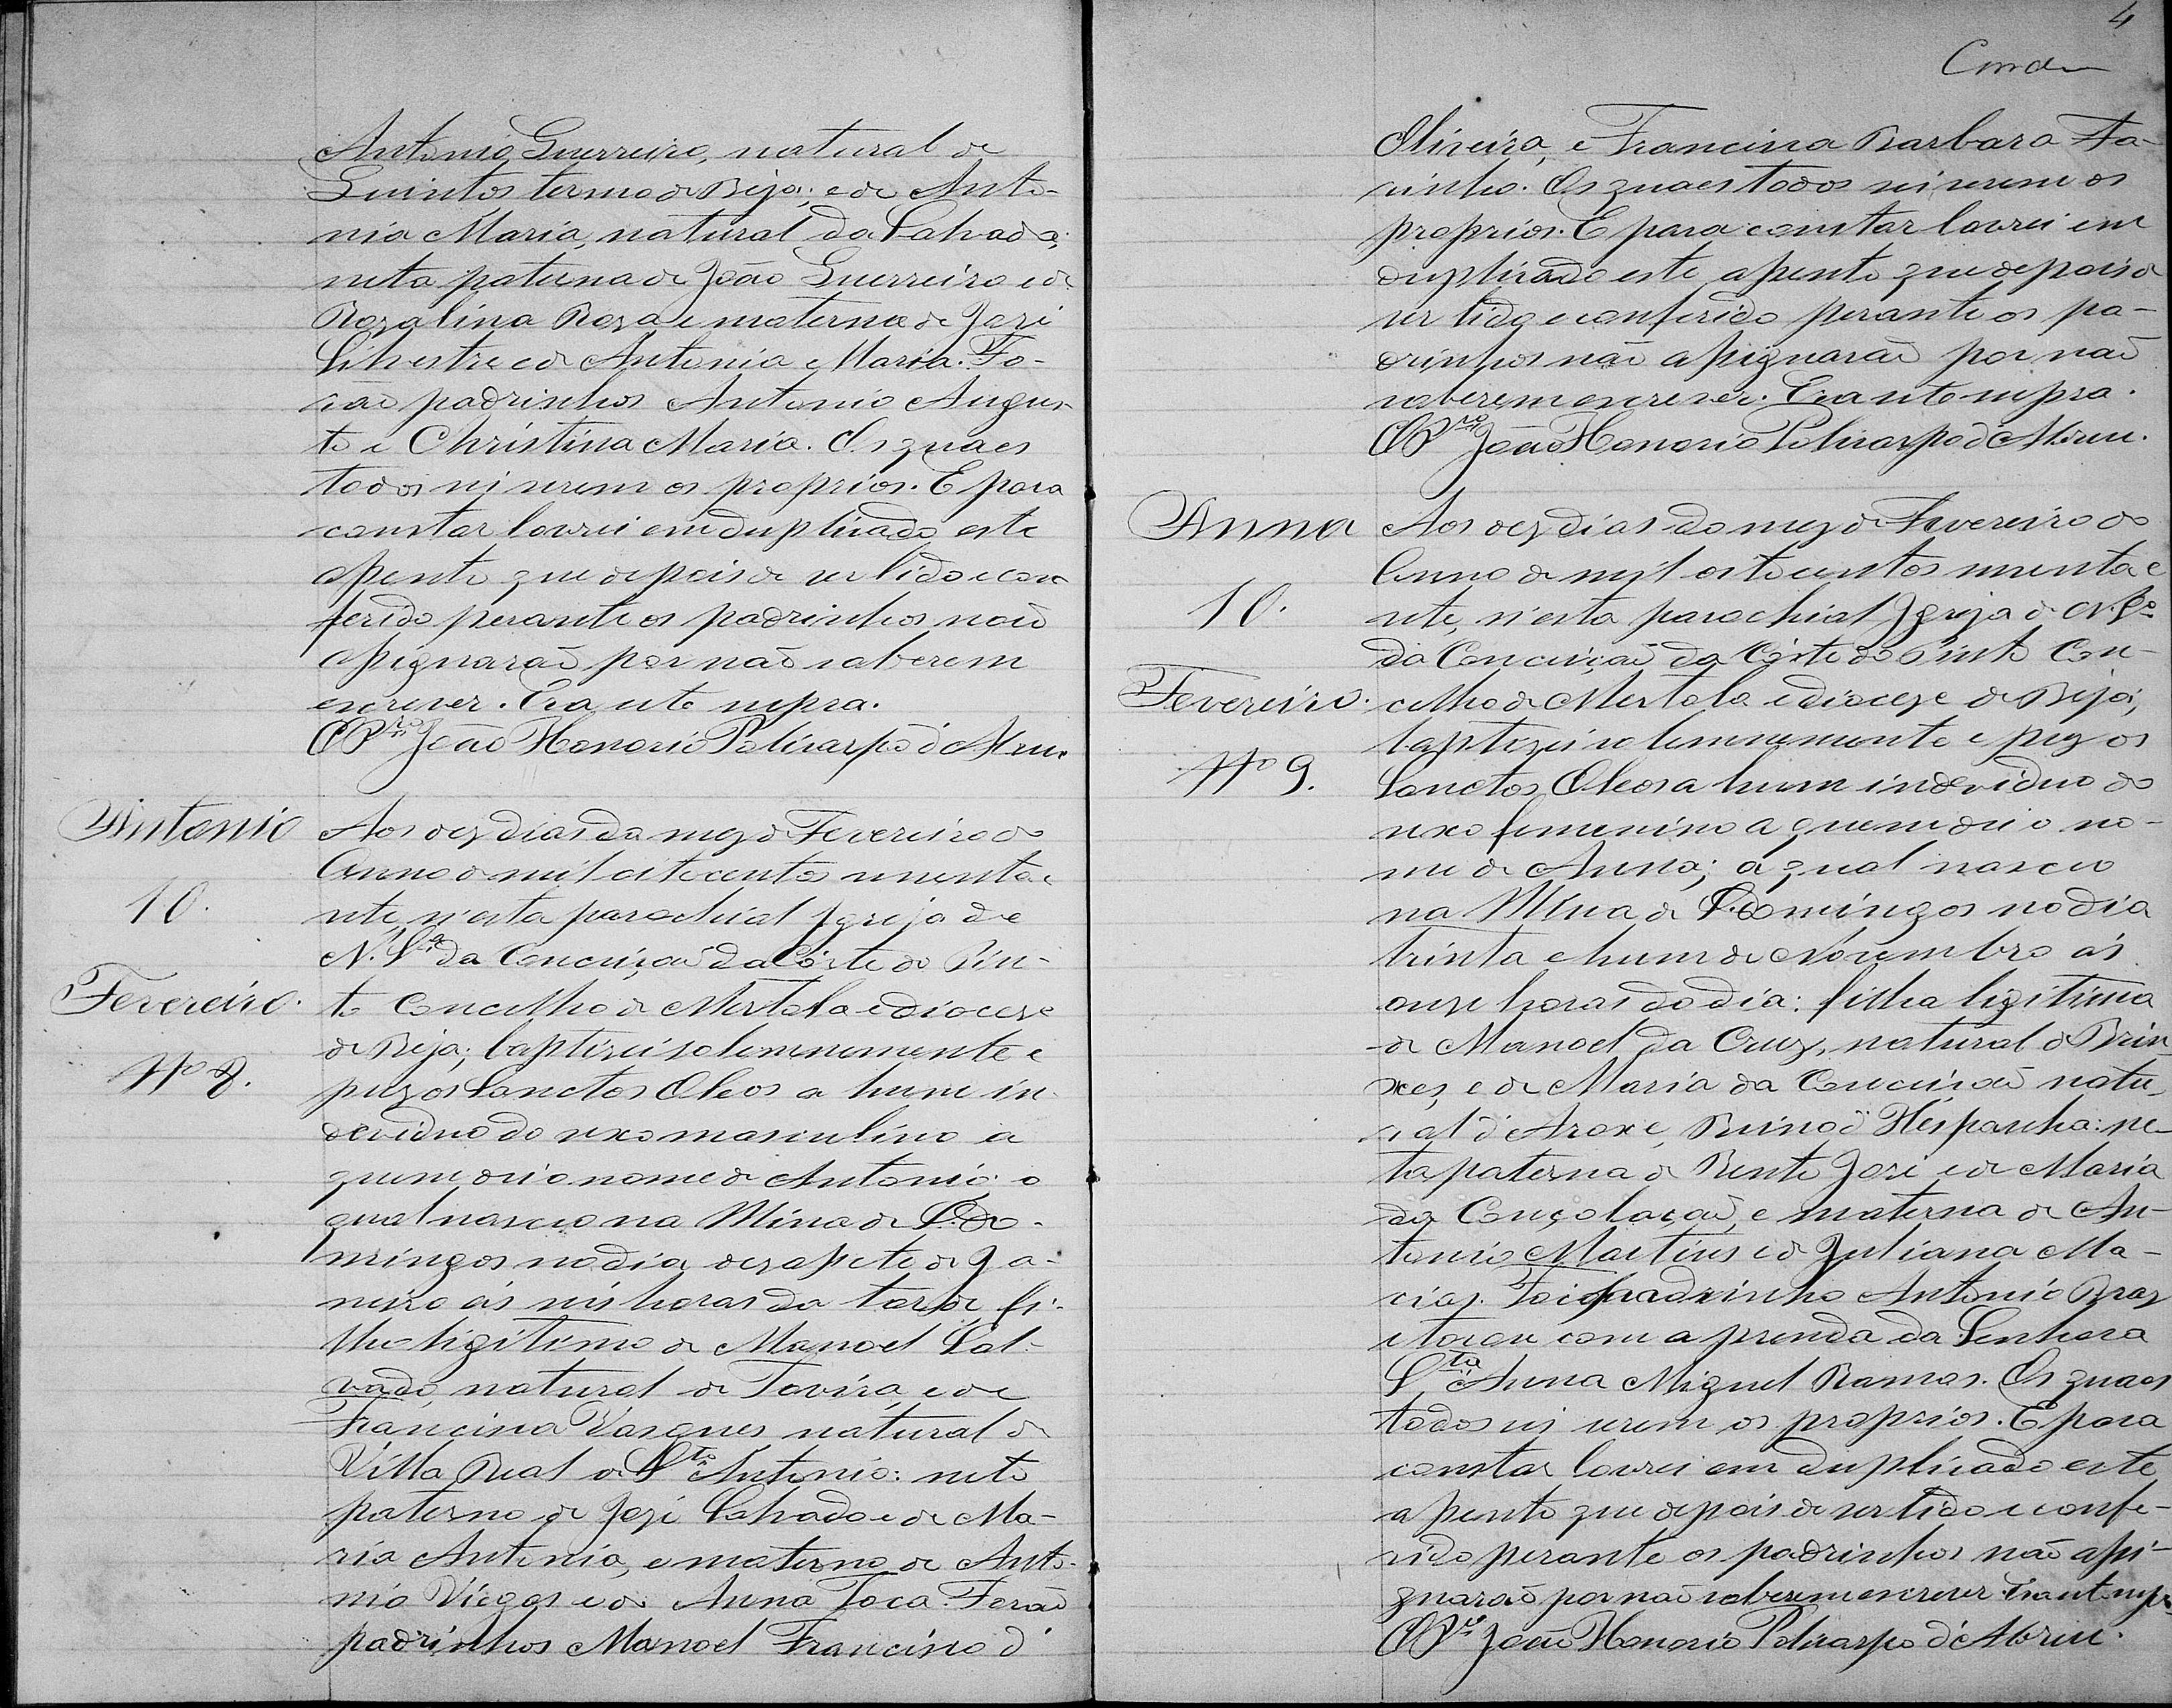 Antonio Guerreiro, natural de
Quintos termo de Beja; e de Anto-
nia Maria, natural da Salvada;
neta paterna de João Guerreiro e de
Rozalina Roza e materna de Jozé
Silvestre e de Antonia Maria. Fo-
rão padrinhos Antonio Augus-
to e Christina Maria. Os quaes
todos sei serem os proprios. E para
constar lavrei em duplicado este
assento que depois de ser lido e con
ferido perante os padrinhos não
assignarão por não saberem
escrever. Era ut supra.
O P.ro João Honorio Policarpo d'Abreu
Antonio
10.
Fevereiro.
Nº 8.
Aos dez dias do mez de Fevereiro do
Anno de mil oitocentos setenta e
sete, n'esta parochial Igreja de
N. Sª da Conceição da Côrte do Pin-
to Concelho de Mertola e diocese
de Beja; baptizei solemnemente e
puz os Sanctos Oleos a hum in-
deviduo do sexo masculino a
quem dei o nome de Antonio; o
qual nasceo na Mina de S. Do-
mingos no dia dezasete de Ja-
neiro ás seis horas da tarde, fi-
lho ligitimo de Manoel Sal-
vado, natural de Tavira, e de
Francisca Vasques natural de
Villa Real de Stº Antonio: neto
paterno de Jozé Salvado e de Ma-
ria Antonia, e materno de Anto-
nio Viegas e de Anna Toca. Forão
padrinhos Manoel Francisco d'
4
Oliveira, e Francisca Barbara Fa-
rinho. Os quaes todos sei serem os
proprios. E para constar lavrei em
duplicado este assento que depois de
ser lido e conferido perante os pa-
drinhos não assignarão por não
saberem escrever. Era ut supra.
O P.ro João Honorio Policarpo d'Abreu.
Anna
10.
Fevereiro.
Nº 9.
Aos dez dias do mez de Fevereiro do
Anno de mil oitocentos setenta e
sete, n'esta parochial Igreja de N. Sª
da Conceição da Côrte do Pinto Con-
celho de Mertola e diocese de Beja;
baptizei solemnemente e puz os
Sanctos Oleos a hum indeviduo do
sexo femenino a quem dei o no-
me de Anna; a qual nasceo
na Mina de S. Domingos no dia
trinta e hum de Novembro ás
onze horas do dia: filha ligitima
de Manoel da Cruz, natural de Brin-
xes, e de Maria da Conceição natu-
ral d'Aroxe, Reino d'Hespanha: ne-
ta paterna de Bento José e de Maria
da Consolação, e materna de An-
tonio Martins e de Juliana Ma-
cias. Foi padrinho Antonio Braz
e tocou com a prenda da Senhora
Sta Anna Miguel Ramos. Os quaes
todos sei serem os proprios. E para
constar lavrei em duplicado este
assento que depois de ser lido e confe-
rido perante os padrinhos não assi-
gnarão por não saberem escrever. Era ut supra
O P.ro João Honorio Policarpo d'Abreu.